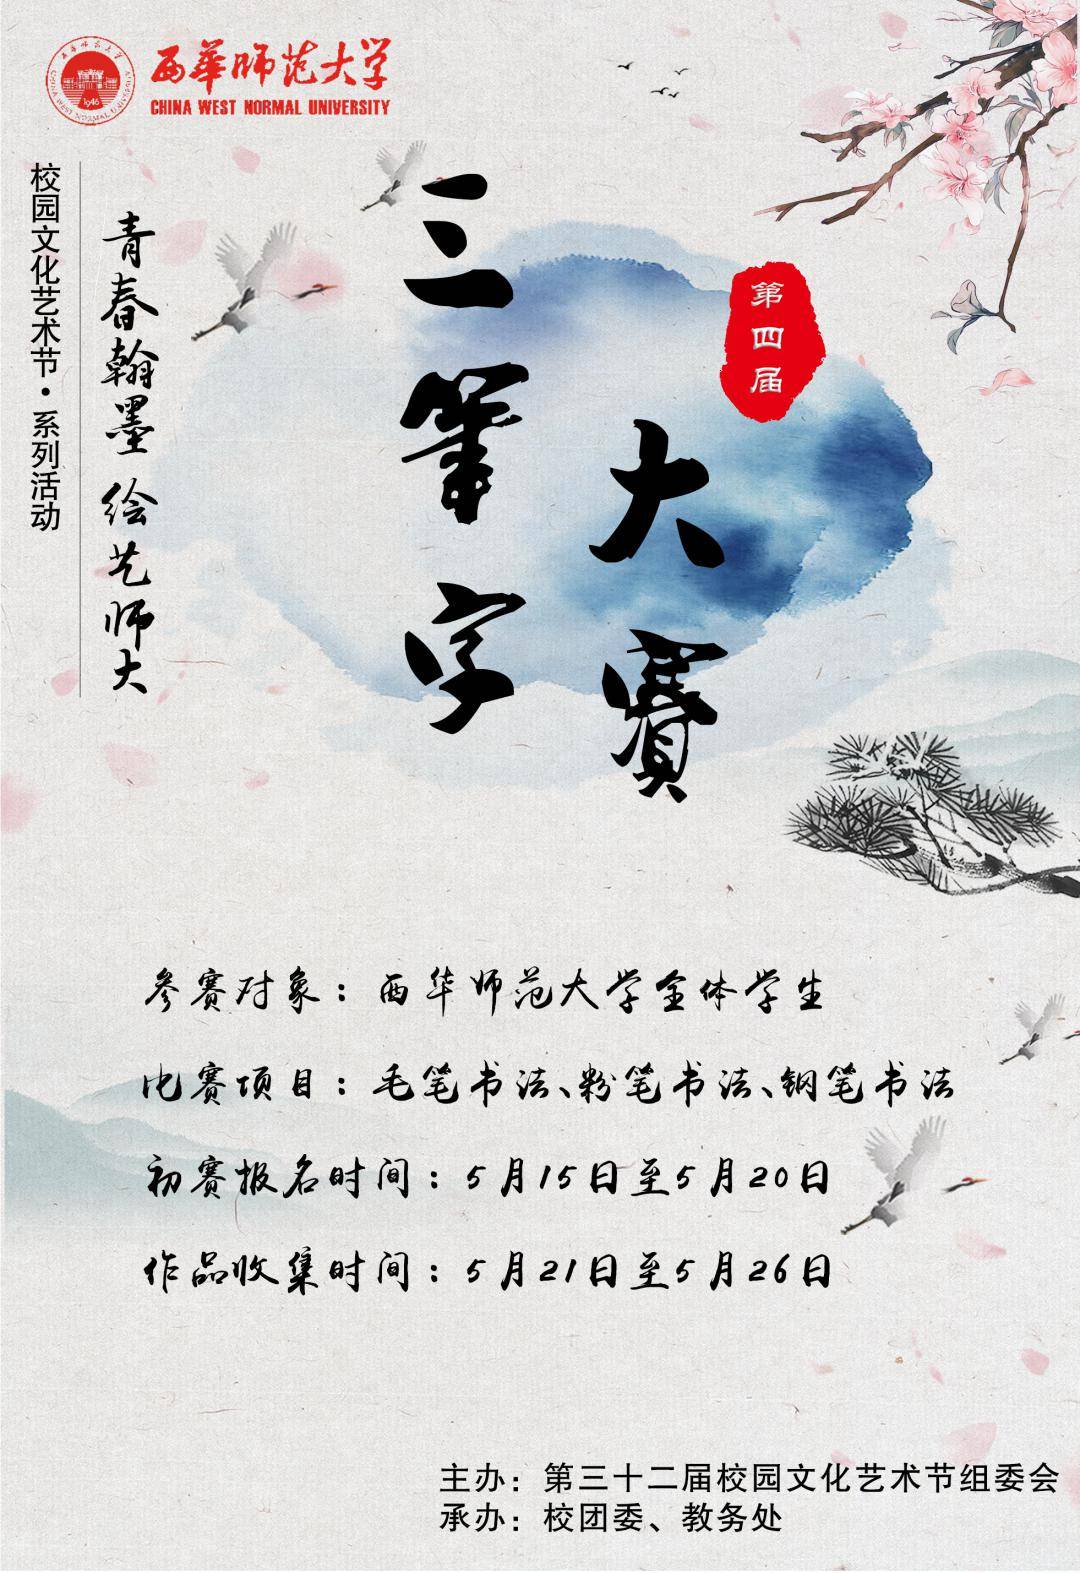 西華师范大学
CHINA WEST NORMAL UNIVERSITY
1946
校园文化艺术节·系列活动
青春翰墨 绘艺师大
三筆字
大賽
第四届
参赛对象：西华师范大学全体学生
比赛项目：毛笔书法、粉笔书法、钢笔书法
初赛报名时间：5月15日至5月20日
作品收集时间：5月21日至5月26日
主办：第三十二届校园文化艺术节组委会
承办：校团委、教务处